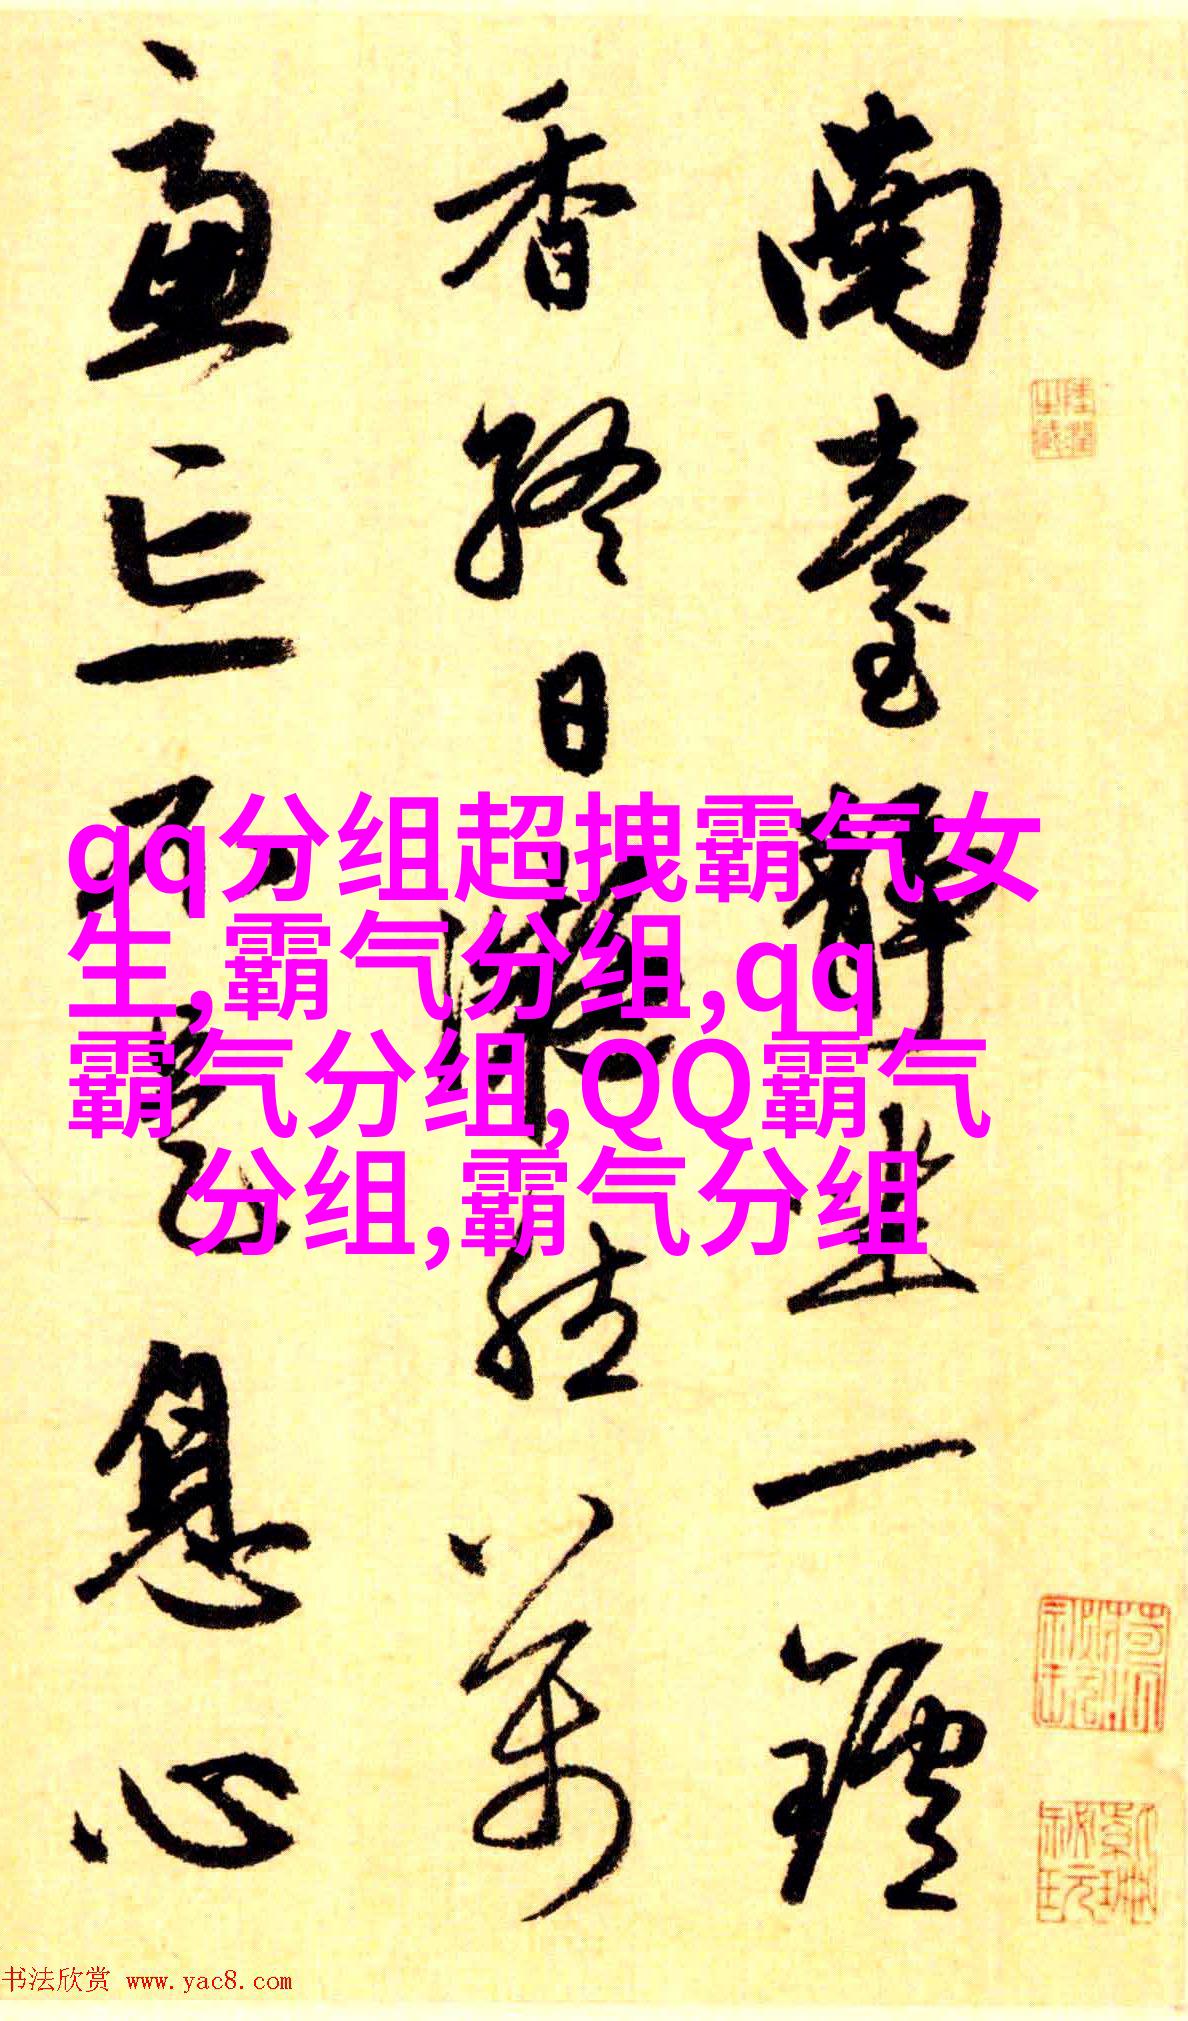 南臺静坐一鑪
香終日凝然萬
慮忘不是息心
qq分组超拽霸气女
生,霸气分组,qq
霸气分组,QQ霸气
分组,霸气分组
书法欣赏 www.yac8.com